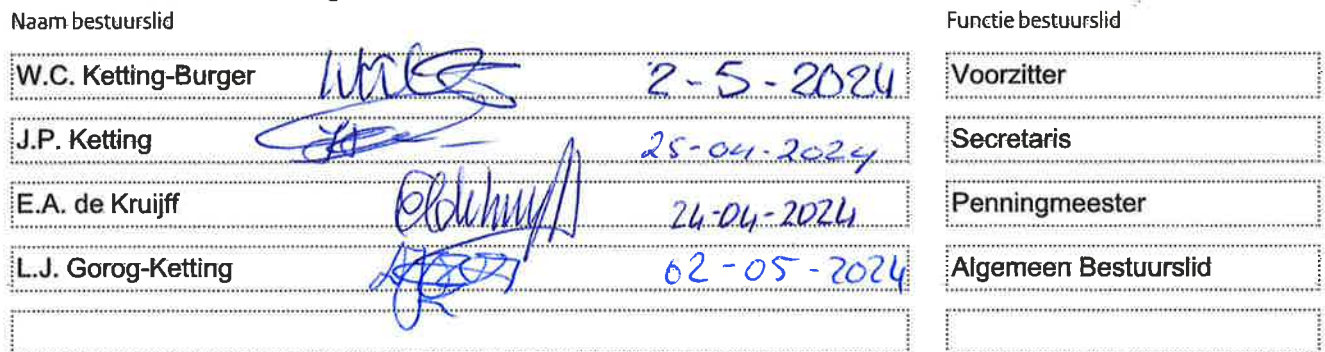 Naam bestuurslid Functie bestuurslid
W.C. Ketting-Burger 2-5-2024 Voorzitter
J.P. Ketting 25-04-2024 Secretaris
E.A. de Kruijff 24-04-2024 Penningmeester
L.J. Gorog-Ketting 02-05-2024 Algemeen Bestuurslid